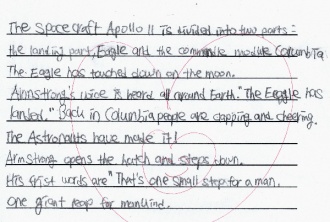 The spacecraft Apollo 11 is divided into two parts:
the landing part, Eagle and the commande module Columbia
The Eagle has touched down on the moon.
Armstrong's voice is heard all around Earth. "The Eagle has
landed." Back in Columbia people are clapping and cheering.
The Astronauts have made it!
Armstrong opens the hatch and steps down.
His first words are "That's one small step for a man.
One giant leap for mankind.